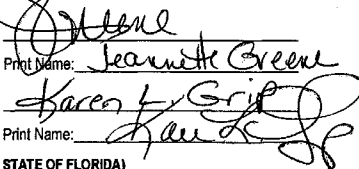 Print Name: Jeannette Greene
Karen L. Grip
Print Name:
STATE OF FLORIDA)